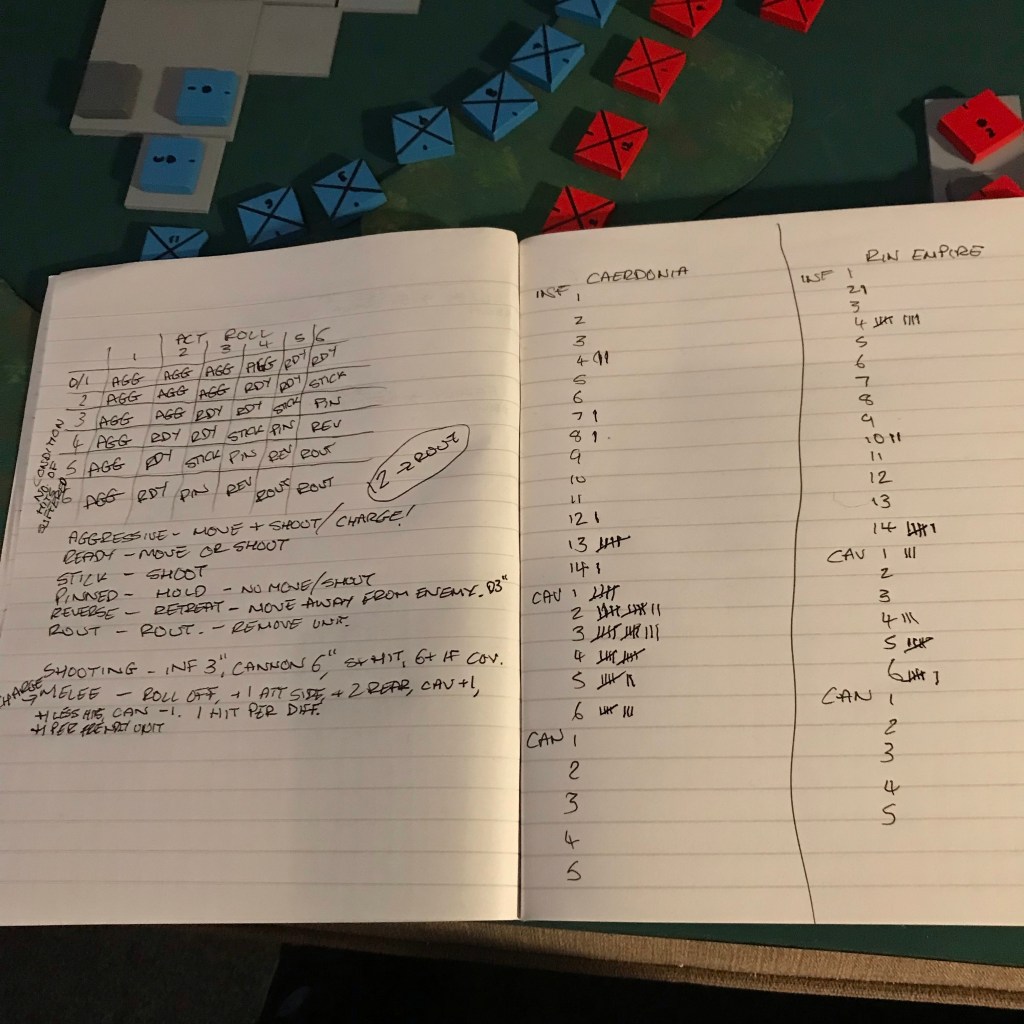 ACT ROLL
1 2 3 4 5 6
0/1 AGG AGG AGG AGG RDY RDY
2 AGG AGG AGG RDY RDY STICK
3 AGG AGG RDY RDY STICK PIN
4 AGG RDY RDY STICK PIN REV
5 AGG RDY STICK PIN REV ROUT
6 AGG RDY PIN REV ROUT ROUT
CONDITION
NO. OF
HITS
SUFFERED
12 → ROUT
AGGRESSIVE - MOVE + SHOOT/CHARGE!
READY - MOVE OR SHOOT
STICK - SHOOT
PINNED - HOLD - NO MOVE/SHOOT
REVERSE - RETREAT - MOVE AWAY FROM ENEMY. D3"
ROUT - ROUT. - REMOVE UNIT.
SHOOTING - INF 3", CANNON 6", 5+ HIT, 6+ IF COV.
CHARGE → MELEE - ROLL OFF, +1 ATT SIDE, +2 REAR, CAV +1,
+1 LESS HITS, CAN -1. 1 HIT PER DIFF.
+1 PER FRENDLY UNIT
CAERDONIA
INF 1
2
3
4 II
5
6
7 I
8 I
9
10
11
12 I
13 IIII
14 I
CAV 1 IIII
2 IIII IIII II
3 IIII IIII III
4 IIII IIII
5 IIII II
6 IIII III
CAN 1
2
3
4
5
RIN EMPIRE
INF 1
2 I
3
4 IIII IIII
5
6
7
8
9
10 II
11
12
13
14 IIII I
CAV 1 III
2
3
4 III
5 IIII
6 IIII I
CAN 1
2
3
4
5